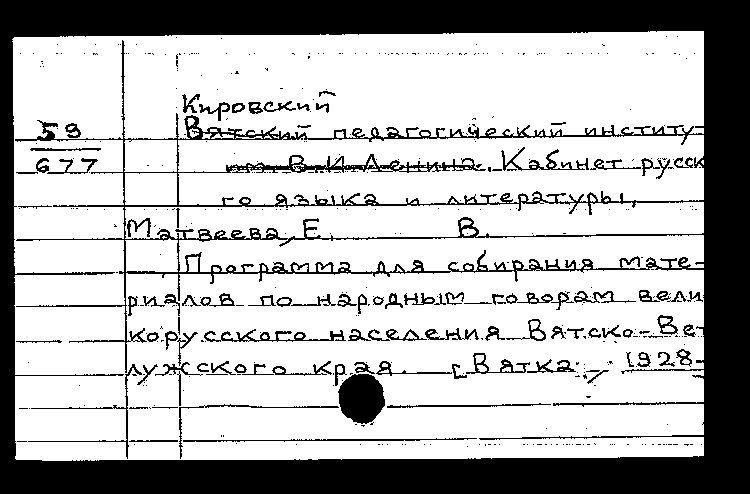 Кировский
59 Вятский педагогический институ-
677 им. В.И.Ленина. Кабинет русск
го языка и литературы,
Матвеева, Е. В.
Программа для собирания мате-
риалов по народным говорам вели
корусского населения Вятско-Вет
лужского края. [Вятка, 1928-